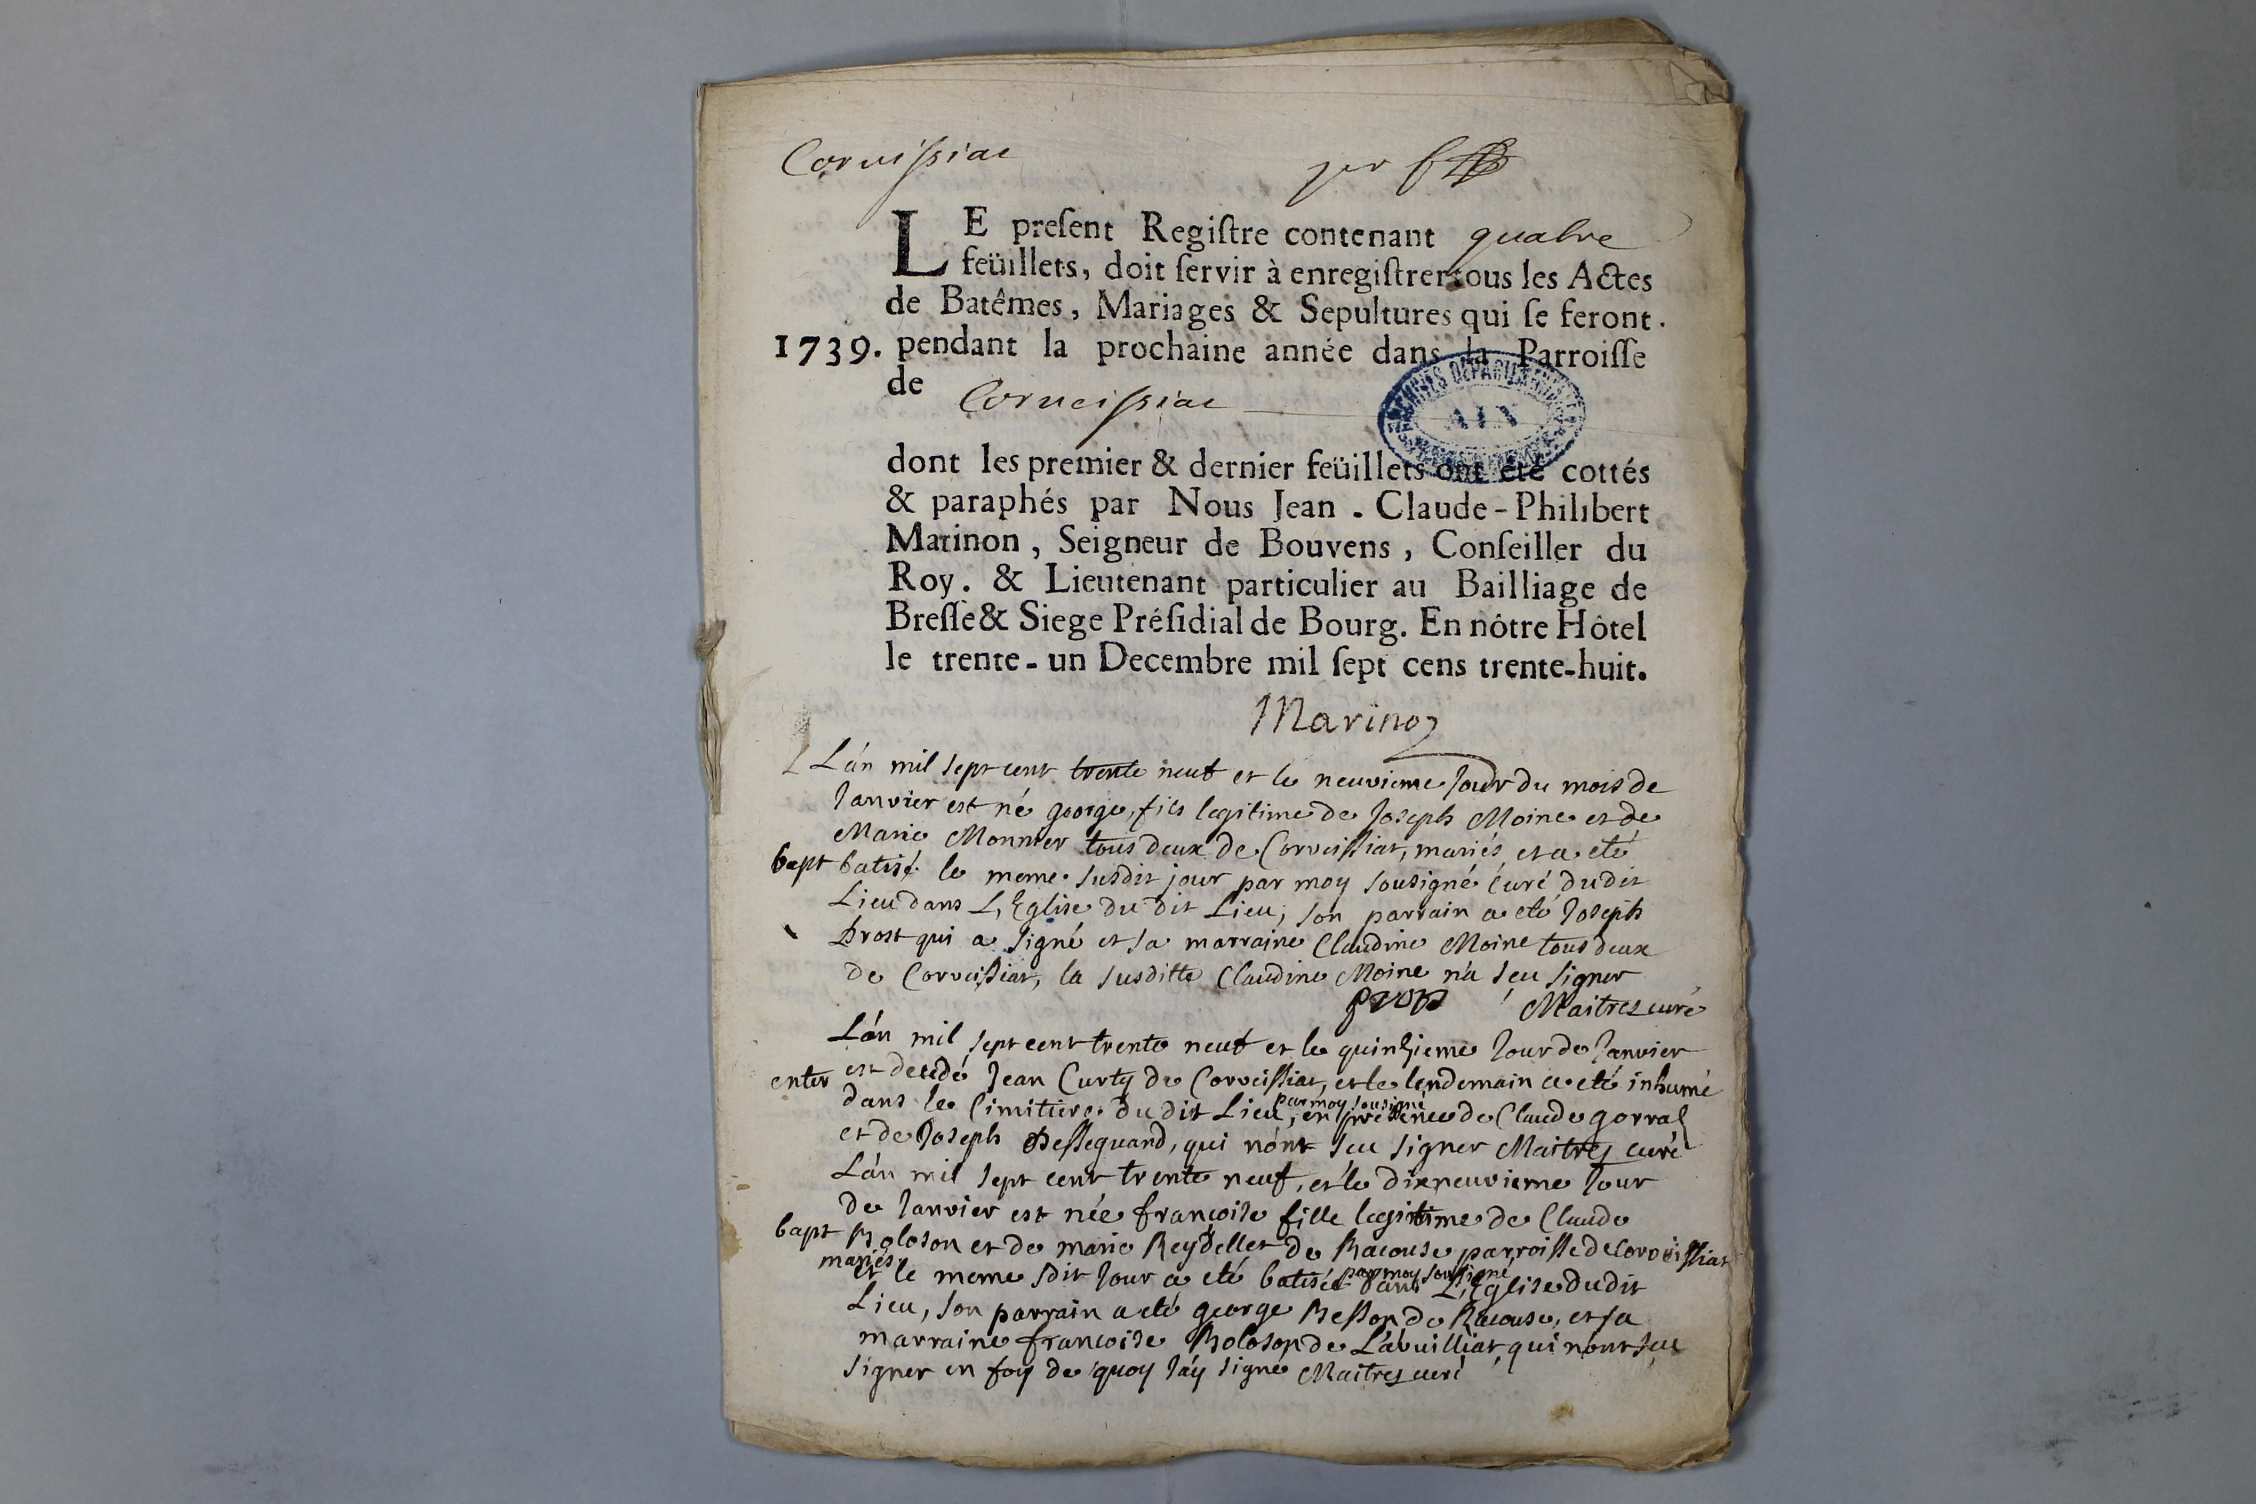 Corveissiac
per
LE preſent Regiſtre contenant quatre
feüillets, doit ſervir à enregiſtrer tous les Actes
de Batêmes, Mariages & Sepultures qui ſe feront
1739. pendant la prochaine année dans la Parroiſſe
de Corveissiac
ARCHIVES DEPARTEMENTALES
AIN
dont les premier & dernier feüillets ont été cottés
& paraphés par Nous Jean-Claude-Philibert
Marinon, Seigneur de Bouvens, Conſeiller du
Roy. & Lieutenant particulier au Bailliage de
Breſſe & Siege Préſidial de Bourg. En nôtre Hôtel
le trente-un Decembre mil ſept cens trente-huit.
Marinon
L'án mil sept cent trente neuf et le neuvieme Jour du mois de
Janvier est né george, fils legitime de Joseph Moine et de
Marie Monnier tous deux de Corveissiat, mariés et a eté
bapt batisé le meme susdit jour par moy sousigné curé dudit
Lieu dans L'Eglise du dit Lieu; son parrain a eté Joseph
Prost qui a signé et sa marraine Claudine Moine tous deux
de Corveissiat, la susditte Claudine Moine n'a sçu signer
prost Maitres curé
L'án mil sept cent trente neuf et le quinzieme Jour de Janvier
enter est decedé Jean Curty de Corveissiat, et le lendemain a eté inhumé
par moy sousigné
dans le Cimitiere du dit Lieu, en presence de Claude gorral
et de Joseph Desseguard, qui n'ont sçu signer Maitres curé
L'án mil sept cent trente neuf, et le dixneuvieme Jour
de Janvier est née françoise fille legitime de Claude
bapt Boloson et de marie Reydellet de Racouse parroisse de Corveissiat
mariés
par moy sousigné
et le meme sdit Jour a eté batisée dans L'Eglise du dit
Lieu, son parrain a eté george Besson de Racouse, et sa
marraine francoise Boloson de Lavuilliat qui n'ont sçu
signer en foy de quoy J'áy signé Maitres curé